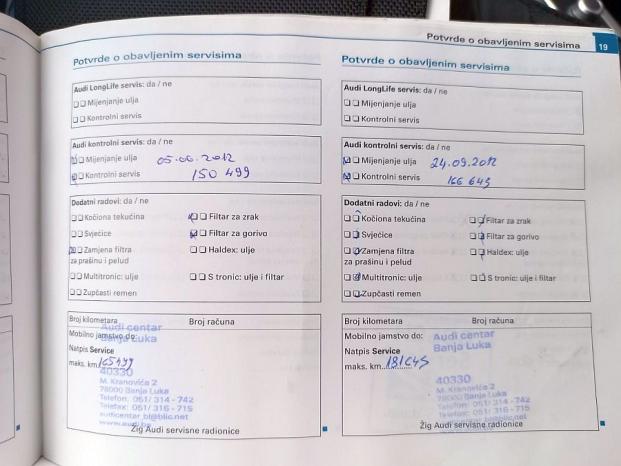 Potvrde o obavljenim servisima 19
Potvrde o obavljenim servisima
Audi LongLife servis: da / ne
Mijenjanje ulja
Kontrolni servis
Audi kontrolni servis: da / ne
Mijenjanje ulja 05.06.2012
Kontrolni servis 150 499
Dodatni radovi: da / ne
Kočiona tekućina Filtar za zrak
Svjećice Filtar za gorivo
Zamjena filtra Haldex: ulje
za prašinu i pelud
Multitronic: ulje S tronic: ulje i filtar
Zupčasti remen
Broj kilometara Broj računa
Mobilno jamstvo do:
Natpis Service
maks. km 165499
Audi centar
Banja Luka
40330
M. Kranovića 2
78000 Banja Luka
Telefon: 051/ 314 - 742
Telefax: 051/ 316 - 715
audicentar_bl@blic.net
Žig Audi servisne radionice
Potvrde o obavljenim servisima
Audi LongLife servis: da / ne
Mijenjanje ulja
Kontrolni servis
Audi kontrolni servis: da / ne
Mijenjanje ulja 24.09.2012
Kontrolni servis 166 645
Dodatni radovi: da / ne
Kočiona tekućina Filtar za zrak
Svjećice Filtar za gorivo
Zamjena filtra Haldex: ulje
za prašinu i pelud
Multitronic: ulje S tronic: ulje i filtar
Zupčasti remen
Broj kilometara Broj računa
Mobilno jamstvo do:
Natpis Service
maks. km 181645
Audi centar
Banja Luka
40330
M. Kranovića 2
78000 Banja Luka
Telefon: 051/ 314 - 742
Telefax: 051/ 316 - 715
audicentar_bl@blic.net
Žig Audi servisne radionice